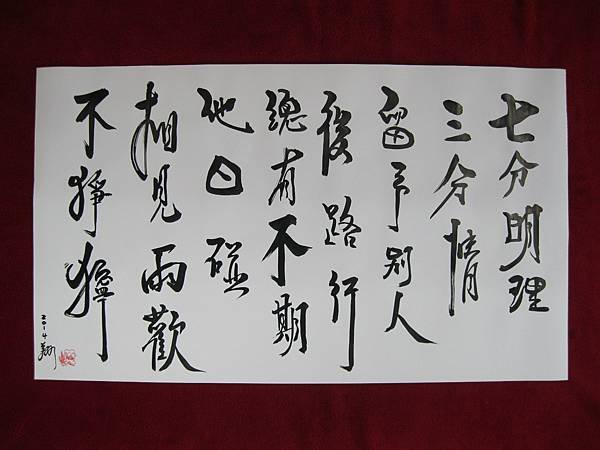 七分明理
三分情
留予别人
後路行
總有不期
他日碰
相見兩歡
不猙獰
2014